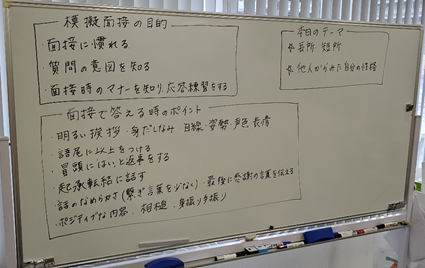 模擬面接の目的
・面接に慣れる
・質問の意図を知る
・面接時のマナーを知り、応答練習をする
本日のテーマ
☆ 長所 短所
☆ 他人からみた自分の性格
面接で答える時のポイント
・明るい挨拶・身だしなみ 目線・姿勢・声色 表情
・語尾に以上をつける
・冒頭にはいと返事をする
・起承転結に話す
・話のなめらかさ(繋ぎ言葉を少なく)・最後に感謝の言葉を伝える
・ポジティブな内容、相槌、身振り手振り